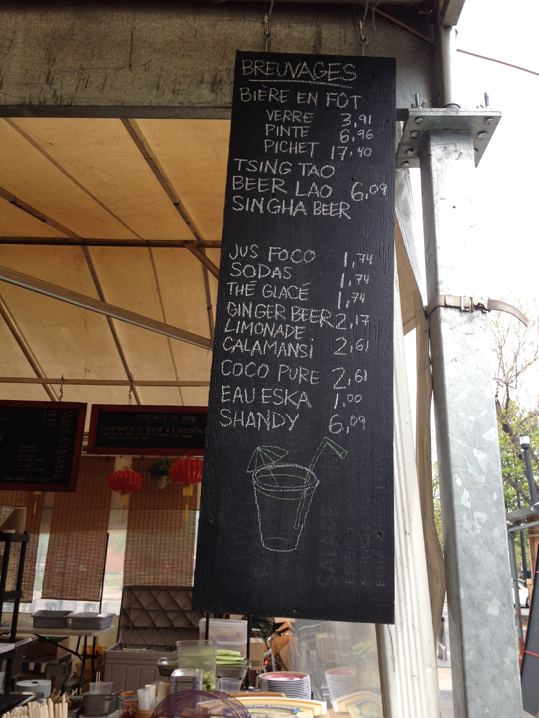 BREUVAGES
BIÈRE EN FÛT
VERRE 3,91
PINTE 6,96
PICHET 17,40
TSING TAO
BEER LAO 6,09
SINGHA BEER
JUS FOCO 1,74
SODAS 1,74
THÉ GLACÉ 1,74
GINGER BEER 2,17
LIMONADE
CALAMANSI 2,61
COCO PURE 2,61
EAU ESKA 1,00
SHANDY 6,09
SALADE